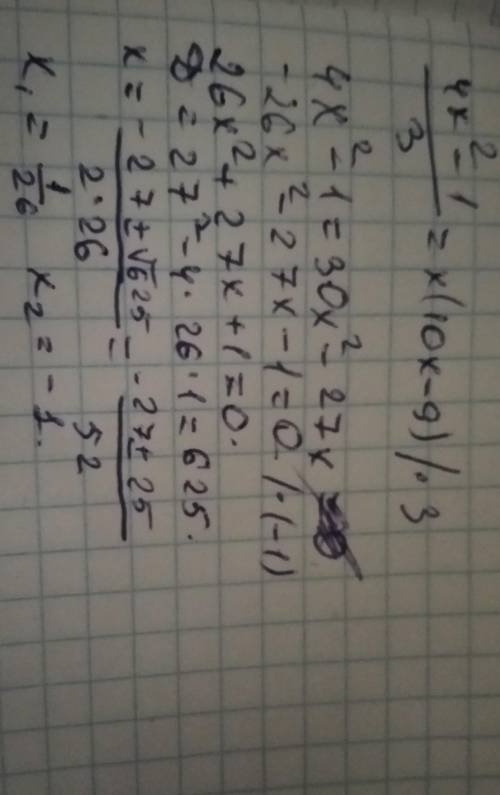 4x² - 1 / 3 = x(10x - 9) /·3
4x² - 1 = 30x² - 27x
- 26x² - 27x - 1 = 0 /·(-1)
26x² + 27x + 1 = 0.
D = 27² - 4·26·1 = 625.
x = - 27 ± √625 / 2·26 = - 27 ± 25 / 52
x₁ = 1/26 x₂ = - 1.